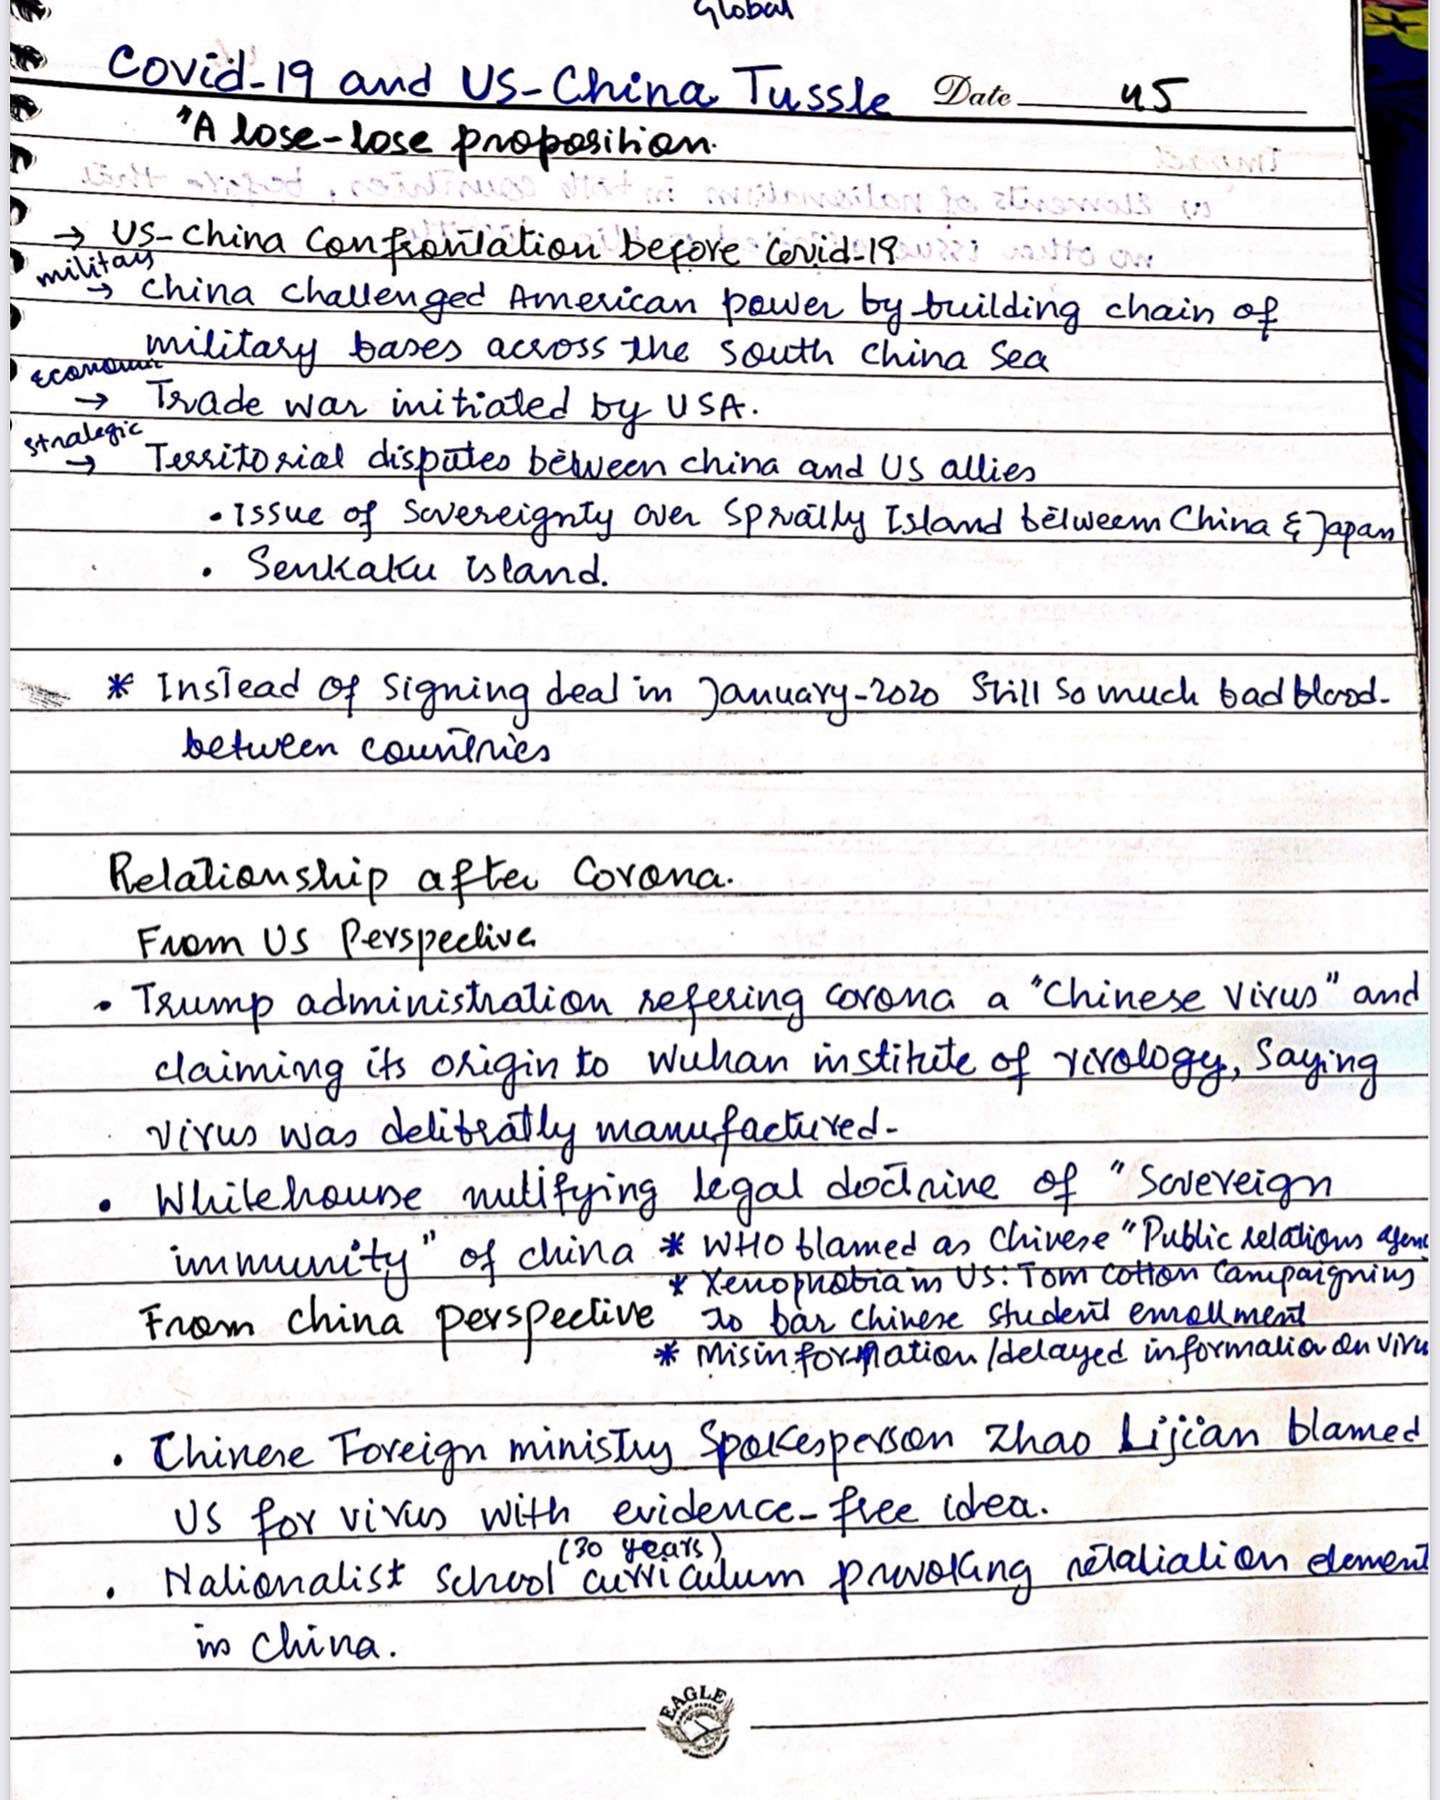 Global
Covid-19 and US-China Tussle Date 45
"A lose-lose proposition.
→ US-China Confrontation before Covid-19
military → China challenged American power by building chain of
military bases across the South China Sea
Economic → Trade war initiated by USA.
Strategic → Territorial disputes between china and US allies
• Issue of Sovereignty over Sprally Island between China & Japan
• Senkaku island.
* Instead of signing deal in January-2020 still so much bad blood-
between countries
Relationship after Corona.
From US Perspective
• Trump administration refering corona a "Chinese virus" and
claiming its origin to Wuhan institute of virology, saying
virus was delibratly manufactured-
• Whitehouse nullifying legal doctrine of "Sovereign
immunity" of china * WHO blamed as Chinese "Public relations agenc
* Xenophobia in US: Tom Cotton Campaigning
From China perspective to bar Chinese student enrollment
* Misinformation/delayed information on viru
• Chinese Foreign ministry Spokesperson Zhao Lijian blamed
US for virus with evidence-free idea.
(30 years)
• Nationalist school curriculum provoking retaliation element
in China.
EAGLE